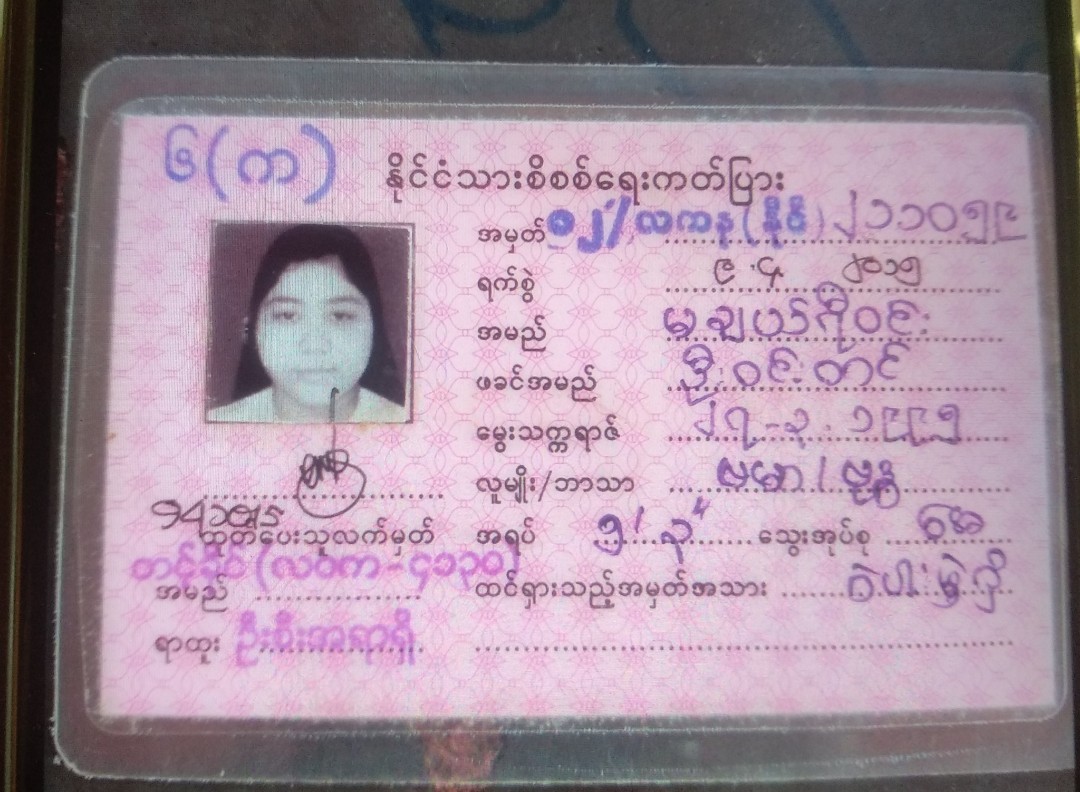 ၆(က)
နိုင်ငံသားစိစစ်ရေးကတ်ပြား
အမှတ် ၁၂/လကန(နိုင်)၂၁၁၀၅၉
ရက်စွဲ ၉.၄ ၂၀၁၅
အမည် မချယ်ရီဝင်း
ဖခင်အမည် ဦးဝင်းတင်
မွေးသက္ကရာဇ် ၂၇-၃.၁၉၉၅
လူမျိုး/ဘာသာ ဗမာ/ဗုဒ္ဓ
အရပ် ၅' ၃" သွေးအုပ်စု
ထင်ရှားသည့်အမှတ်အသား ဝဲပါးမှဲ့ရှိ
ထုတ်ပေးသူလက်မှတ်
အမည် (လဝက-၄၁၃၀)
ရာထူး ဦးစီးအရာရှိ